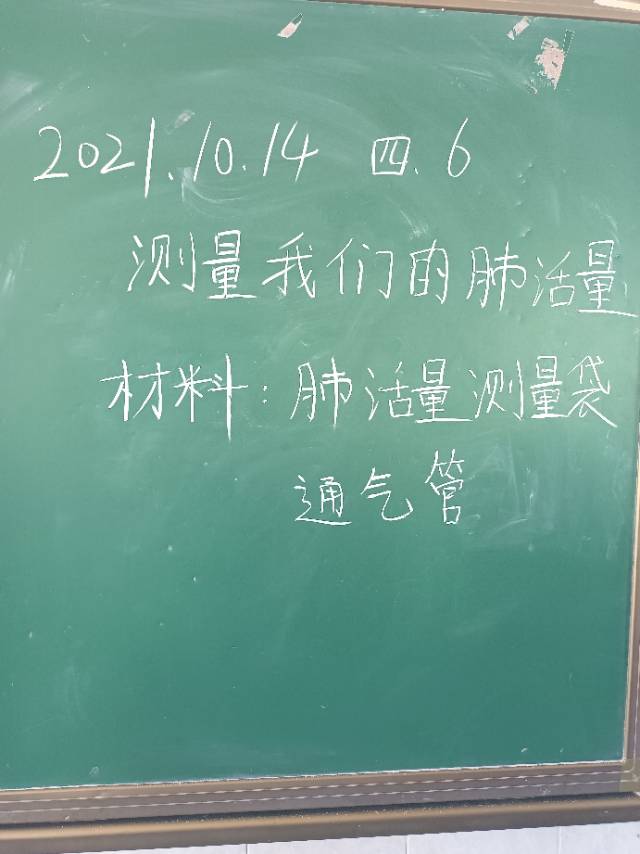 2021.10.14 四.6
测量我们的肺活量
材料:肺活量测量袋
通气管